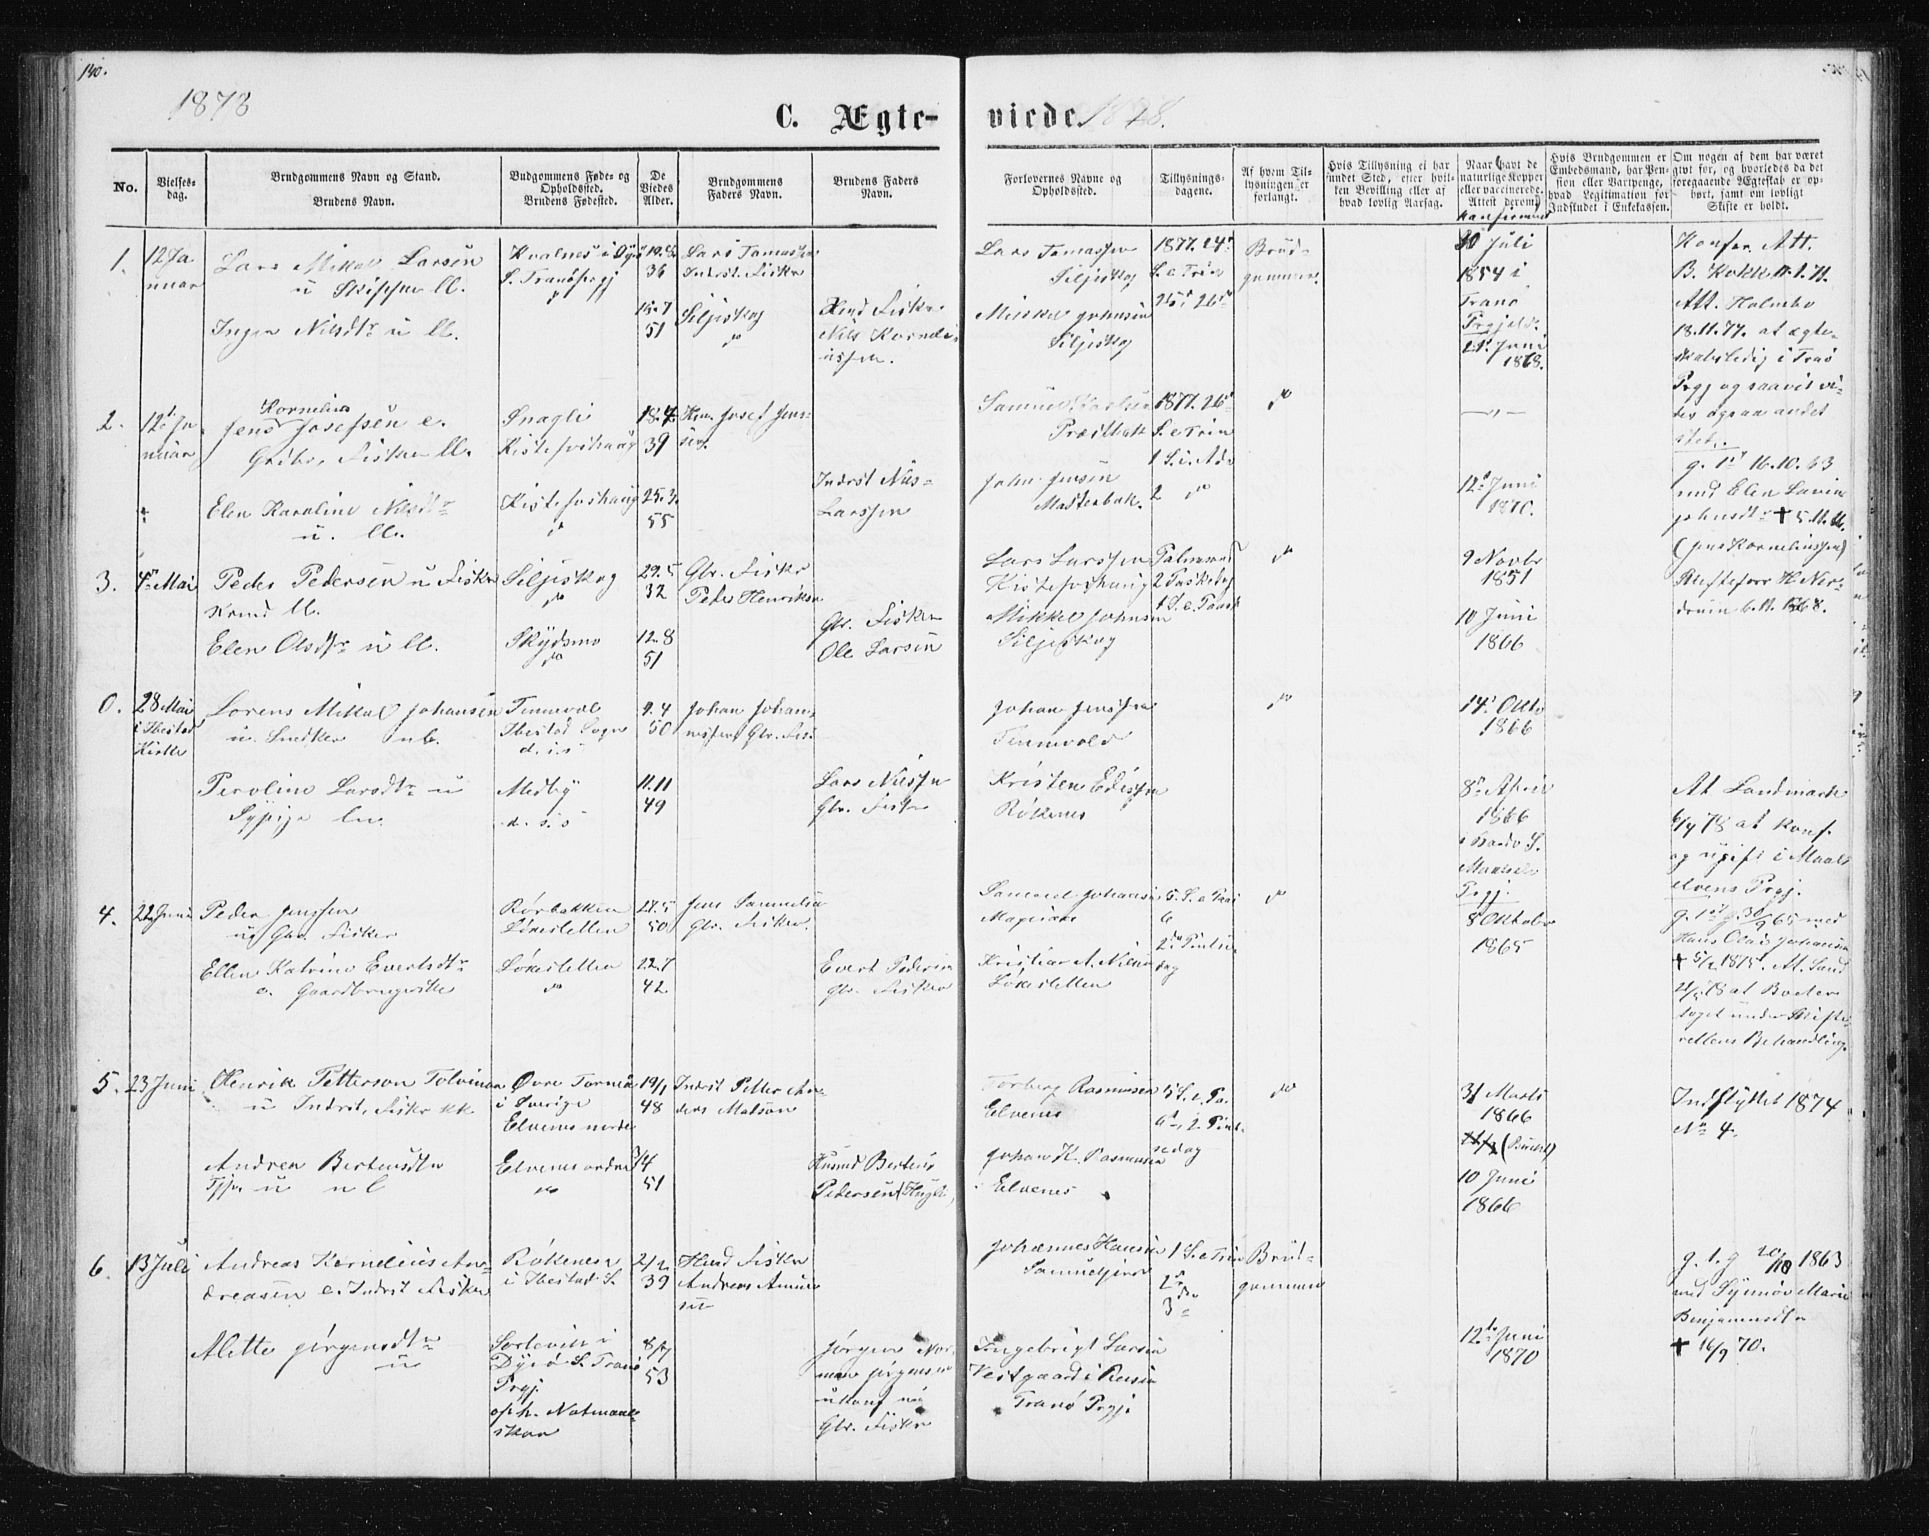 140.
1878
C. Ægte-
viede.
1878.
No.
Vielses-
dag.
Brudgommens Navn og Stand.
Brudens Navn.
Budgommens Føde- og
Opholdssted.
Brudens Fødested.
De
Viedes
Alder.
Brudgommens
Faders Navn.
Brudens Faders
Navn.
Forlovernes Navne og
Opholdssted.
Tillysnings-
dagene.
Af hvem Til-
lysningen er
forlangt.
Hvis Tillysning ei har
fundet Sted, efter hvil-
ken Bevilling eller af
hvad lovlig Aarsag.
Naar havt de
naturlige Kopper
eller vaccinerede.
Attest derom.
Konfirmeret
Hvis Brudgommen er
Embedsmand, har Pen-
sion eller Vartpenge,
hvad Legitimation for
Indskudet i Enkekassen.
Om nogen af dem har været
givt for, og hvorledes da det
foregaaende Ægteskab er op-
hørt, samt om lovligt
Skifte er holdt.
1.
12 Ja-
nuar
Lars Mikal Larsen
u Skipper ll.
Inger Nilsdtr u ll.
Kvalnes i Dyrø
S. Tranø prgj
do
19.8
36
15.7
51
Lars Tomassen
Indrst. Fisker
Siljeskog
do
Husmd Fisker
Nils Korneli-
ussen.
Lars Tomassen
Siljeskog
Mikkel Johnsen
Siljeskog
1877. 24de
S. e Trin
25de 26de
Brud-
gommen.
30 Juli
1854 i
Tranø
Prgjeld.
21 Juni
1868.
Konfr. Att.
B. Kokk 11.1.71.
Att. Holmbo
18.11.77. at ægte-
skabsledig i Tranø
Prgj og saavit vi-
des ogsaa andet
sted.
2.
12te Ja-
nuar
Kornelius
Jens Josefsen e.
Gbr., Fisker ll.
Elen Karoline Nilsdtr
u. ll.
Snagli
Kistefoshaug
Kistefoshaug
do
18.4.
39
25.3.
55
Hm. Josef Jens-
sen.
Indrst Nils
Larssen
Samuel Karlsen
Præstbak
John Jensen
Masterbak.
1877. 26de
S. e Trin
1 S. i Adv
2 do
do
— " —
12te Juni
1870.
g. 1ste 16.10.63
med Elen Lavine
Johnsdtr † 5.11.66.
(Jens Kornelinssen)
Skifteforr. H Ner-
drum 6.11.1868.
3.
4de Mai
Peder Pedersen u Fisker
Kvind ll.
Elen Olsdtr u ll.
Siljeskog
do
Skydsmo
do
29.5
32
12.8
51
Gbr. Fisker
Peder Henriksen
Gbr. Fisker
Ole Larsen
Lars Larssen
Kistefoshaug
Mikkel Johnsen
Siljeskog
Palmesønd
2 Paskedag
1 S. e. Paask
do
9 Novbr
1851
10 Juni
1866
0.
28 Mai
i Ibestad
Kirke
Lorens Mikal Johansen
u. Snedker ub.
Peroline Larsdtr u
Sypige
Tennevol
Ibestad Sogn
d. s. s
Medby
d. s. s
9.4
50
11.11
49
Johan Johan-
nessen Gbr. Fisk
Lars Nilssen
Gbr. Fisker
Johan Jenssen
Tennevold
Kristen Edissen
Røkenes
do
14. Oktb
1866
8de April
1866
i Bardo S.
Maalselv
Prgj.
At. Landmark
6/4 78 at konf.
og ugift i Maals-
elvens Prgj.
4.
22 Juni
Peder Jenssen
u Gbr. Fisker
Ellen Katrine Evertsdtr
e. Gaardbrugerske
Rørbakken
Løksletten
Løksletten
do
27.5
50
22.7
42.
Jens Samuelsen
Gbr. Fisker.
Evert Pedersen
Gbr. Fisker
Samuel Johansen
Kristian A. Nilsen
Løksletten
5. S. e Paas
6
2den Pintse
dag
do
8 Oktober
1865
g. 1ste g. 30/9 65 med
Hans Olai Johansen
† 5/2 1875. At. Land
21/5 78 at Boet er
taget under Skifte-
rettens Behandling.
5.
23 Juni
Henrik Petterson Tolvinen
u Indrst, Fisker kk.
Andrea Bertensdtr
u u l
Øvre Torneå
i Sverige
Elvenes nordre
Elvenes nordre
do
19/1
48
/4
51
Indrst Petter An-
ders Matson
Husmd Bertius
Pedersen
Torberg Rasmussen
Elvenes
Johan K. Rasmussen
Elvenes
5 S. e. Pa.
6te, 2 Pint-
sedag
do
31 Marts
1866
10 Juni
1866
Indflyttet 1874
No 4.
6.
13 Juli
Andreas Kornelius An-
dreasen e. Indrst Fisker
Alette Jørgensdtr
u
Røkenes
i Ibestad S.
Sørlevik i
Dyrø S. Tranø
Prgj.
oph. Notmanns-
skar
2/2
39
8/7
53
Husmd Fisker
Andreas
Jørgen Nor-
man Jørgensen
Gbr. Fisker
Johannes Hansen
Ingebrigt Larsen
Vestgaard i Reisen
Tranø Prgj.
1 S. e Trin
2den
3de
Brud-
gommen
12te Juni
1870
g. 1. g 20/10 1863
med Synnøv Marie
Benjaminsdtr
† 16/9 70.